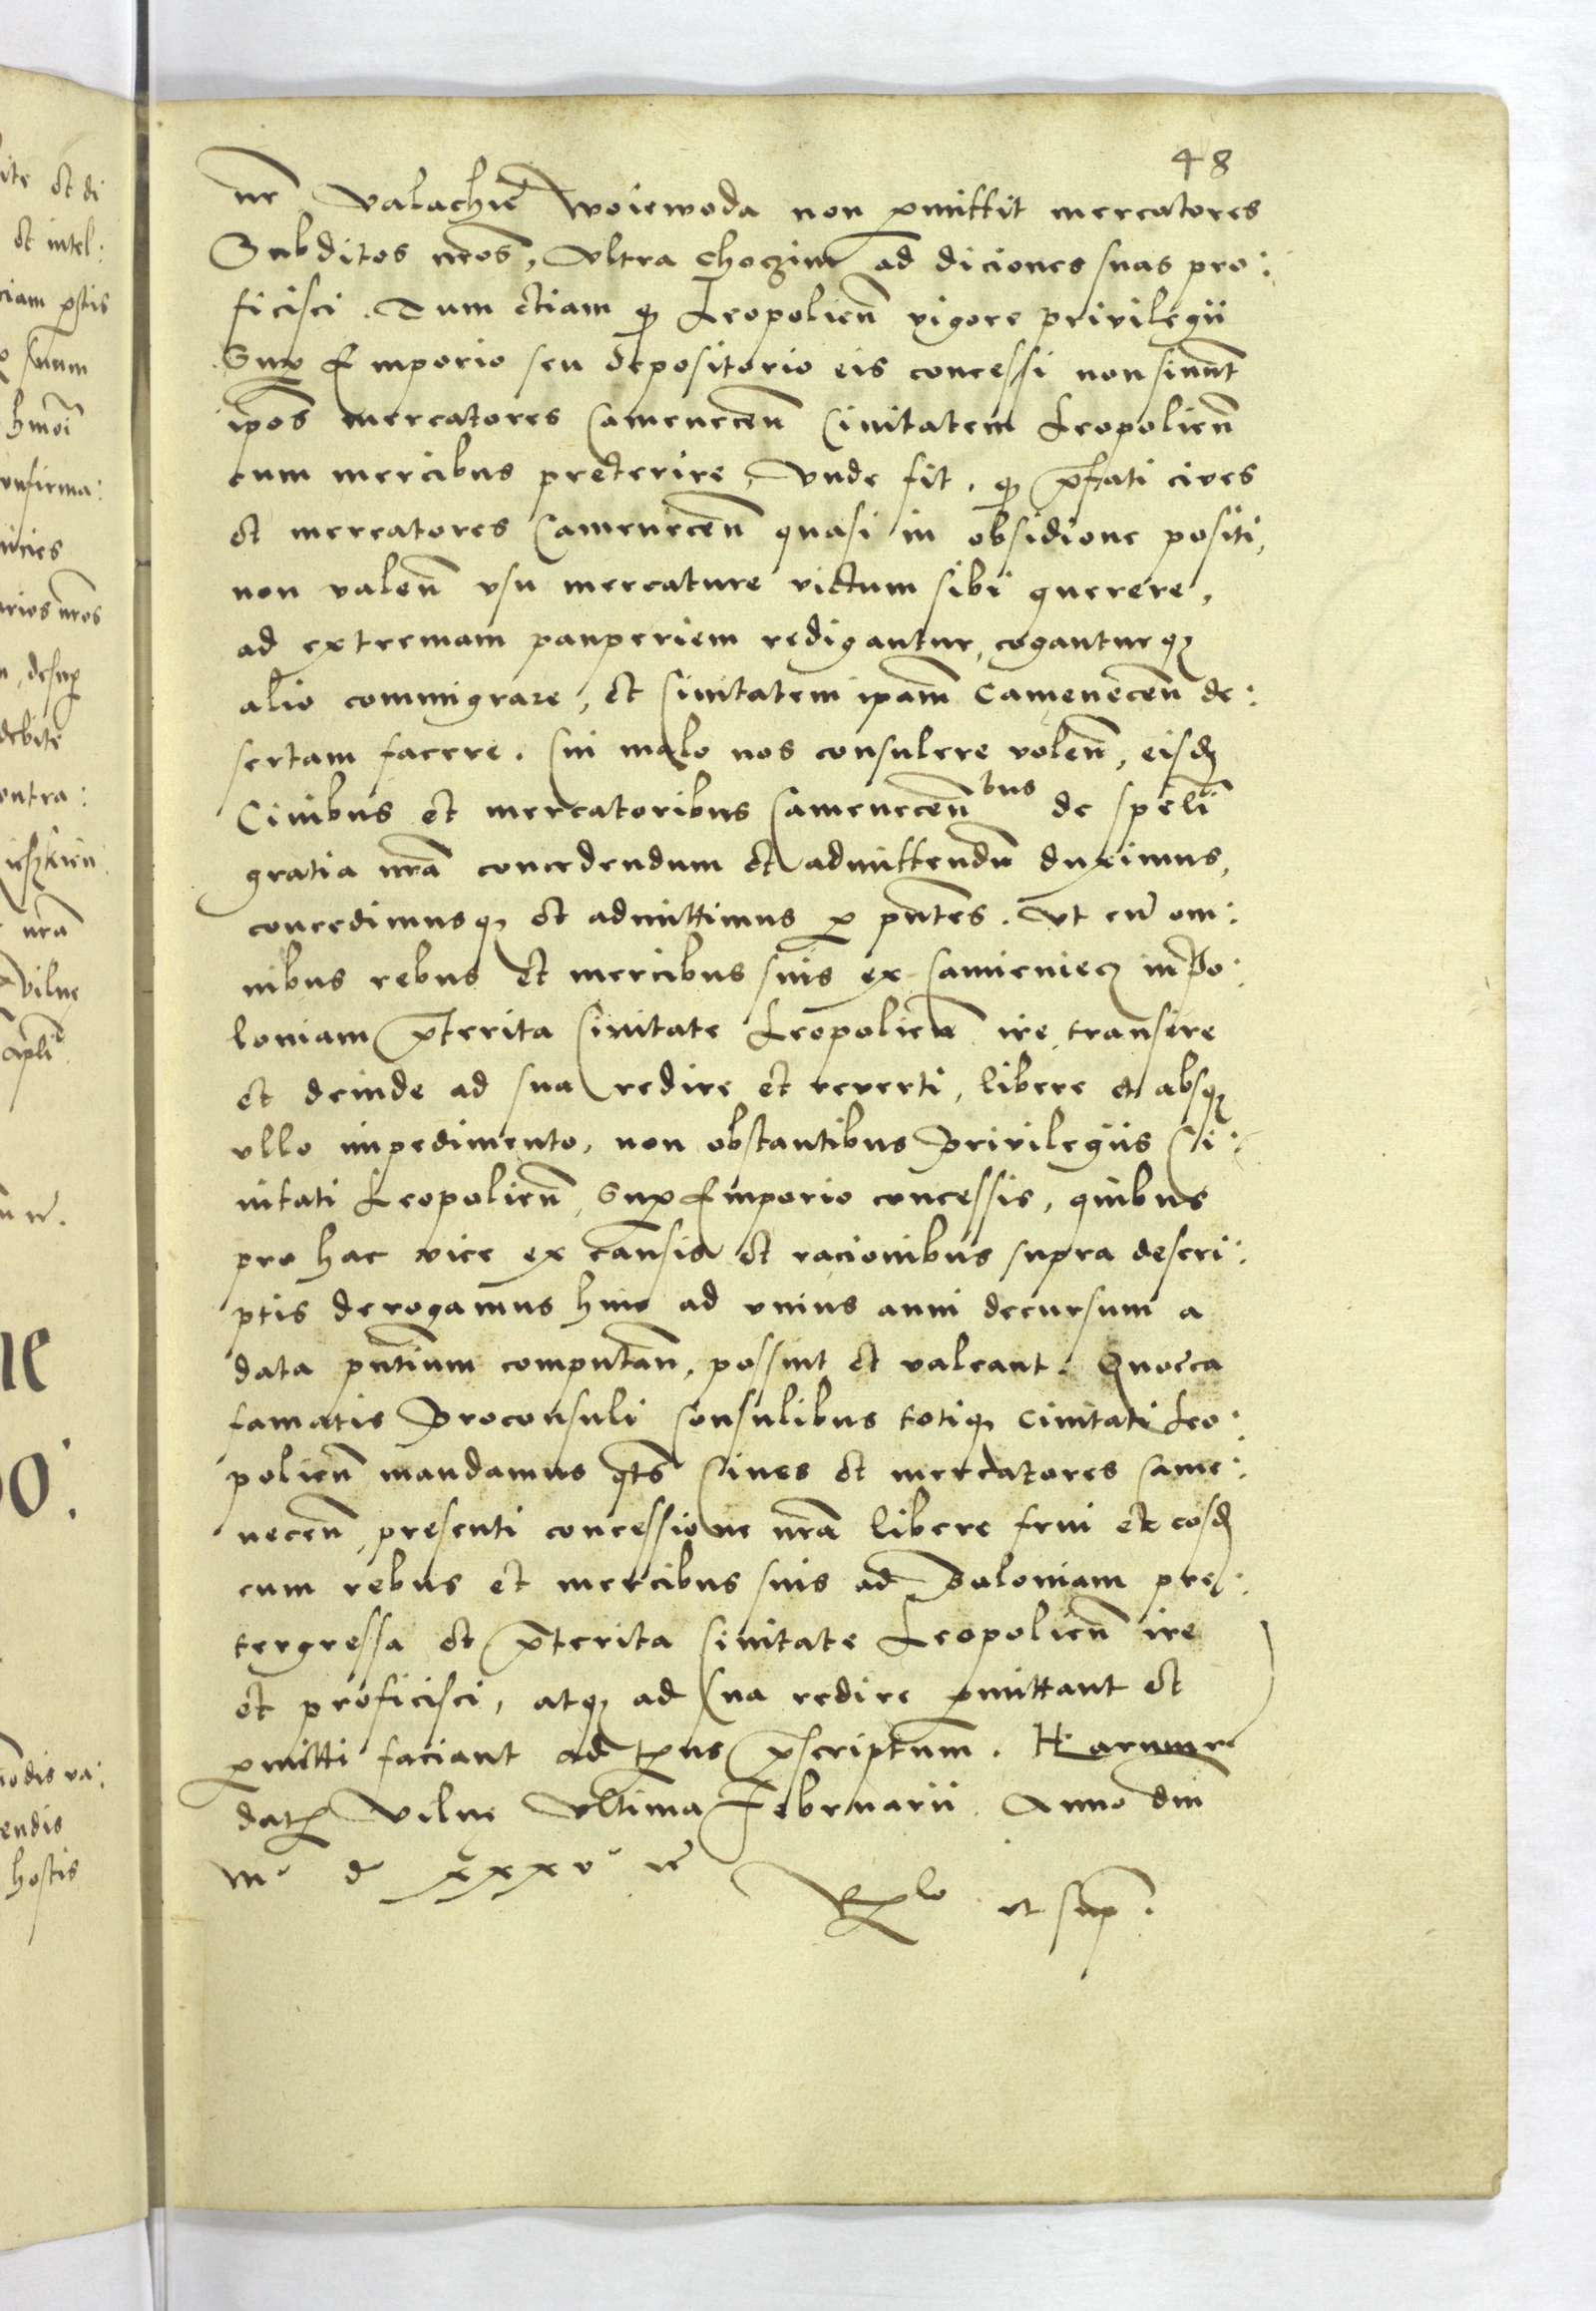 48
ne Valachie Woiewoda non pmittit mercatores
Subditos nros, Vltra choczim ad diciones suas pro:
ficisci. Tum etiam q Leopolien vigore privilegii
Sup Emporio seu depositorio eis concessi non sinunt
ipos mercatores Camenecen Civitatem Leopolien
cum mercibus preterire, Vnde fit, q pfati cives
et mercatores Camenecen quasi in obsidione positi,
non valen vsu mercature victum sibi querere,
ad extremam pauperiem redigantur, cogantur q
alio commigrare, et Civitatem ipam Camenecen de:
sertam facere. Cui malo nos consulere volen, eisd
Civibus et mercatoribus Camenecenbus de speli
gratia nra concedendum et admittendu duximus,
concedimusq et admittimus p pntes. Vt cu om:
nibus rebus et mercibus suis ex Camieniecz in Po:
loniam pterita Civitate Leopolien ire transire
et deinde ad sua redire et reverti, libere et absq
vllo impedimento, non obstantibus Privilegiis Ci:
vitati Leopolien, Sup Emporio concessis, quibus
pro hac vice ex causis et racionibus supra descri:
ptis derogamus hinc ad vnius anni decursum a
data pntium computan, possint et valeant. Quocca
famatis Proconsuli Consulibus totiq Civitati Leo:
polien mandamus qts Cives et mercatores Came:
necen, presenti concessione nra libere frui et eosd
cum rebus et mercibus suis ad Poloniam pre:
tergressa et pterita Civitate Leopolien ire
et proficisci, atq ad sua redire pmittant et
pmitti faciant ad tpus pscriptum. Harum re
dat Vilne Vltima Februarii. Anno dni
mo d xxxvo
Rlo vt sup.